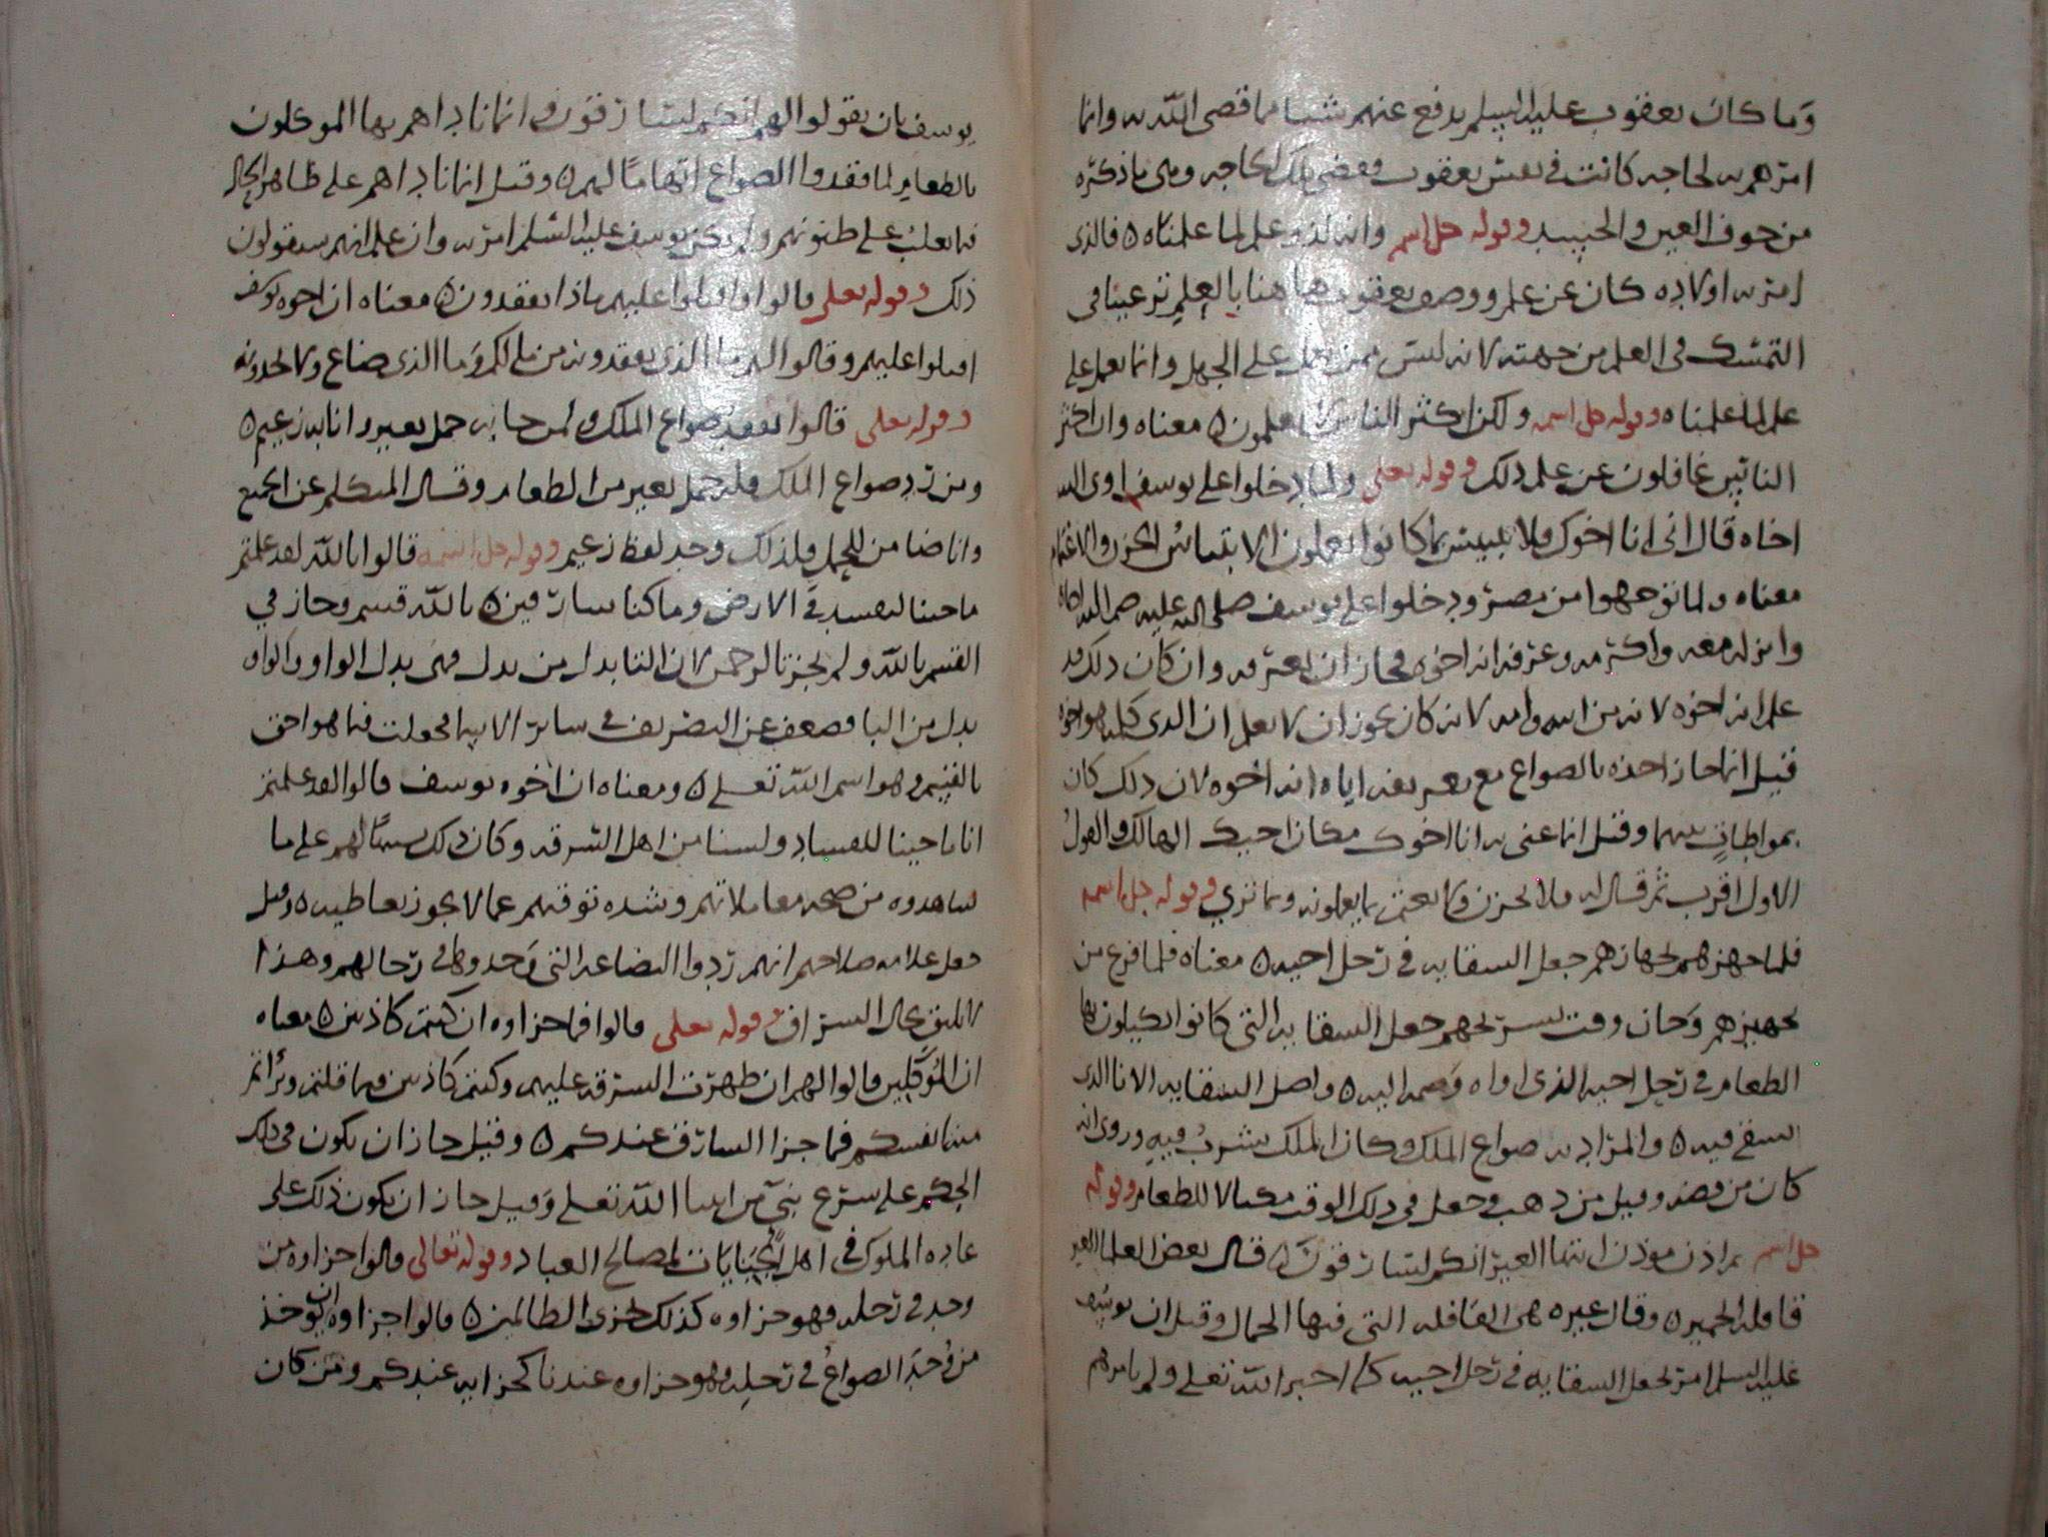 وما كان يعقوب عليه السلم يدفع عنهم شيئا مما قضى الله به وانما
امرهم به لحاجه كانت في نفس يعقوب فقضى تلك الحاجه وهي ما ذكره
من خوف العين والحسد وقوله جل اسمه وانه لذو علم لما علمناه ه فالذي
امر به اولاده كان عن علم ووصف يعقوب هاهنا بالعلم ترغيبا في
التمسك في العلم من جهته لانه ليس ممن يعمل على الجهل وانما يعمل على
علم لما علمناه وقوله جل اسمه ولكن اكثر الناس لا يعلمون ه معناه وان اكثر
الناس غافلون عن علم ذلك وقوله تعلى ولما دخلوا على يوسف اوى اليه
اخاه قال اني انا اخوك فلا تبتئس بما كانوا يعملون الابتياس الحزن والاغتمام
معناه ولما توجهوا من مصر ودخلوا على يوسف صلى الله عليه ضم اليه اخاه
وانزله معه واكرمه وعرفه انه اخوه فجاز ان يعترفه وان كان ذلك قد
علم انه اخوه لانه من ابيه وامه لانه كان يجوز ان لا يعلم ان الذي كلمه هو اخوه
قيل انما جاز اخذه بالصواع مع تعريفه اياه انه اخوه لان ذلك كان
بمواطاة بينهما وقيل انما عنى به انا اخوك مكان اخيك الهالك والقول
الاول اقرب ثم قال له فلا تحزن ولا تغتم بما يعملونه وبما ترى وقوله جل اسمه
فلما جهزهم بجهازهم جعل السقايه في رحل اخيه ه معناه فلما فرغ من
تجهيزهم وحان وقت تسريحهم جعل السقايه التي كانوا يكيلون بها
الطعام في رحل اخيه الذي اواه وضمه اليه ه واصل السقايه الانا الذي
يسقى فيه ه والمراد به صواع الملك وكان الملك يشرب فيه وروى انه
كان من فضه وقيل من ذهب وجعل في ذلك الوقت مكيالا للطعام وقوله
جل اسمه ثم اذن موذن ايتها العير انكم لسارقون ه قال بعض العلما العير
قافله الحمير ه وقال غيره هي القافله التي فيها الجمال وقيل ان يوسف
عليه السلم امر بجعل السقايه في رحل اخيه كما اخبر الله تعلى ولم يامرهم
يوسف بان يقولوا لهم انكم لسارقون وانما ناداهم بها الموكلون
بالطعام لما فقدوا الصواع اتهاما لهم ه وقيل انما ناداهم على ظاهر الحال
فيما يغلب على ظنونهم ولم يكن يوسف عليه السلم امر به وان علم انهم سيقولون
ذلك وقوله تعلى قالوا واقبلوا عليهم ماذا تفقدون ه معناه ان اخوه يوسف
اقبلوا عليهم وقالوا لهم ما الذي تفقدونه من مالكم وما الذي ضاع ولا تجدونه
وقوله تعلى قالوا نفقد صواع الملك ولمن جا به حمل بعير وانا به زعيم ه
ومن رد صواع الملك فله حمل بعير من الطعام وقال المتكلم عن الجميع
وانا ضامن للحمل فلذلك وحد لفظ زعيم وقوله جل اسمه قالوا تالله لقد علمتم
ما جينا لنفسد في الارض وما كنا سارقين ه تالله قسم وجاز في
القسم تالله ولم يجز تالرحمن لان التا بدل من بدل فهي بدل الواو والواو
بدل من البا فضعف عن التصريف في ساير الاسما فجعلت فيما هو احق
بالقسم وهو اسم الله تعلى ه ومعناه ان اخوه يوسف قالوا لقد علمتم
انا ما جينا للفساد ولسنا من اهل السرقه وكان ذلك لهم على ما
شاهدوه من صحه معاملاتهم وشده توقيهم عما لا يجوز تعاطيه ه وقيل
جعل علامه صلاحهم انهم ردوا البضاعه التي وجدوها في رحالهم وهذا
لا يليق بحال السراق وقوله تعلى قالوا فما جزاوه ان كنتم كاذبين ه معناه
ان الموكلين قالوا لهم ان ظهرت السرقه عليهم وكنتم كاذبين فيما قلتم وبراتم
منه انفسكم فما جزا السارق عندكم ه وقيل جاز ان يكون في ذلك
الحكم على شرع نبي من انبيا الله تعلى وقيل جاز ان يكون ذلك على
عاده الملوك في اهل الجنايات لمصالح العباد وقوله تعالى قالوا جزاوه من
وجد في رحله فهو جزاوه كذلك نجزي الظالمين ه قالوا جزاوه ان يوخذ
من وجد الصواع في رحله وهو جزاوه عندنا كجزايه عندكم ومن كان